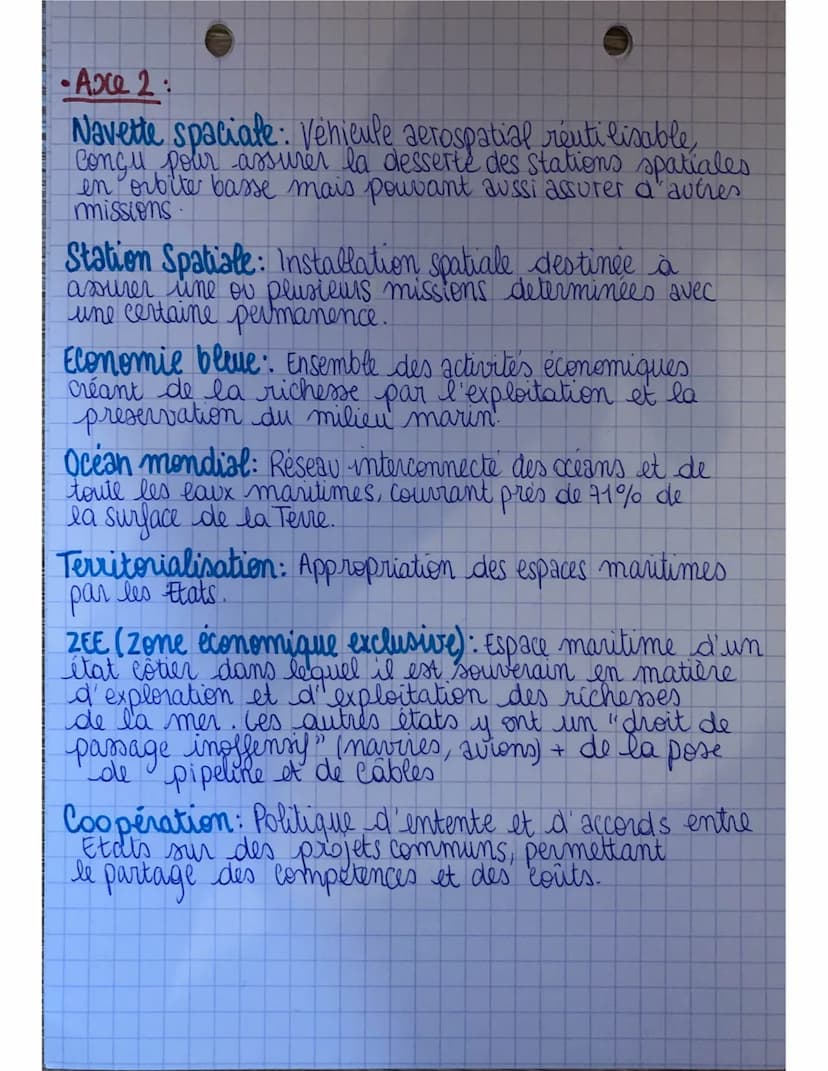 • Axe 2 :
Navette spaciale : Véhicule aerospatial réutilisable,
Conçu pour assurer la desserte des stations spatiales
en orbite basse mais pouvant aussi assurer d'autres
missions.
Station Spatiale : Installation spatiale destinée à
assurer une ou plusieurs missions determinées avec
une certaine permanence.
Economie bleue : Ensemble des activités économiques
créant de la richesse par l'exploitation et la
préservation du milieu marin.
Océan mondial : Réseau interconnecté des océans et de
toute les eaux maritimes, couvrant près de 71% de
la surface de la Terre.
Territorialisation : Appropriation des espaces maritimes
par les Etats.
ZEE (Zone économique exclusive) : Espace maritime d'un
état côtier dans lequel il est souverain en matière
d'exploration et d'exploitation des richesses
de la mer. Les autres états y ont un "droit de
passage inoffensif" (navires, avions) + de la pose
de pipeline et de câbles
Coopération : Politique d'entente et d'accords entre
Etats sur des projets communs, permettant
le partage des compétences et des coûts.